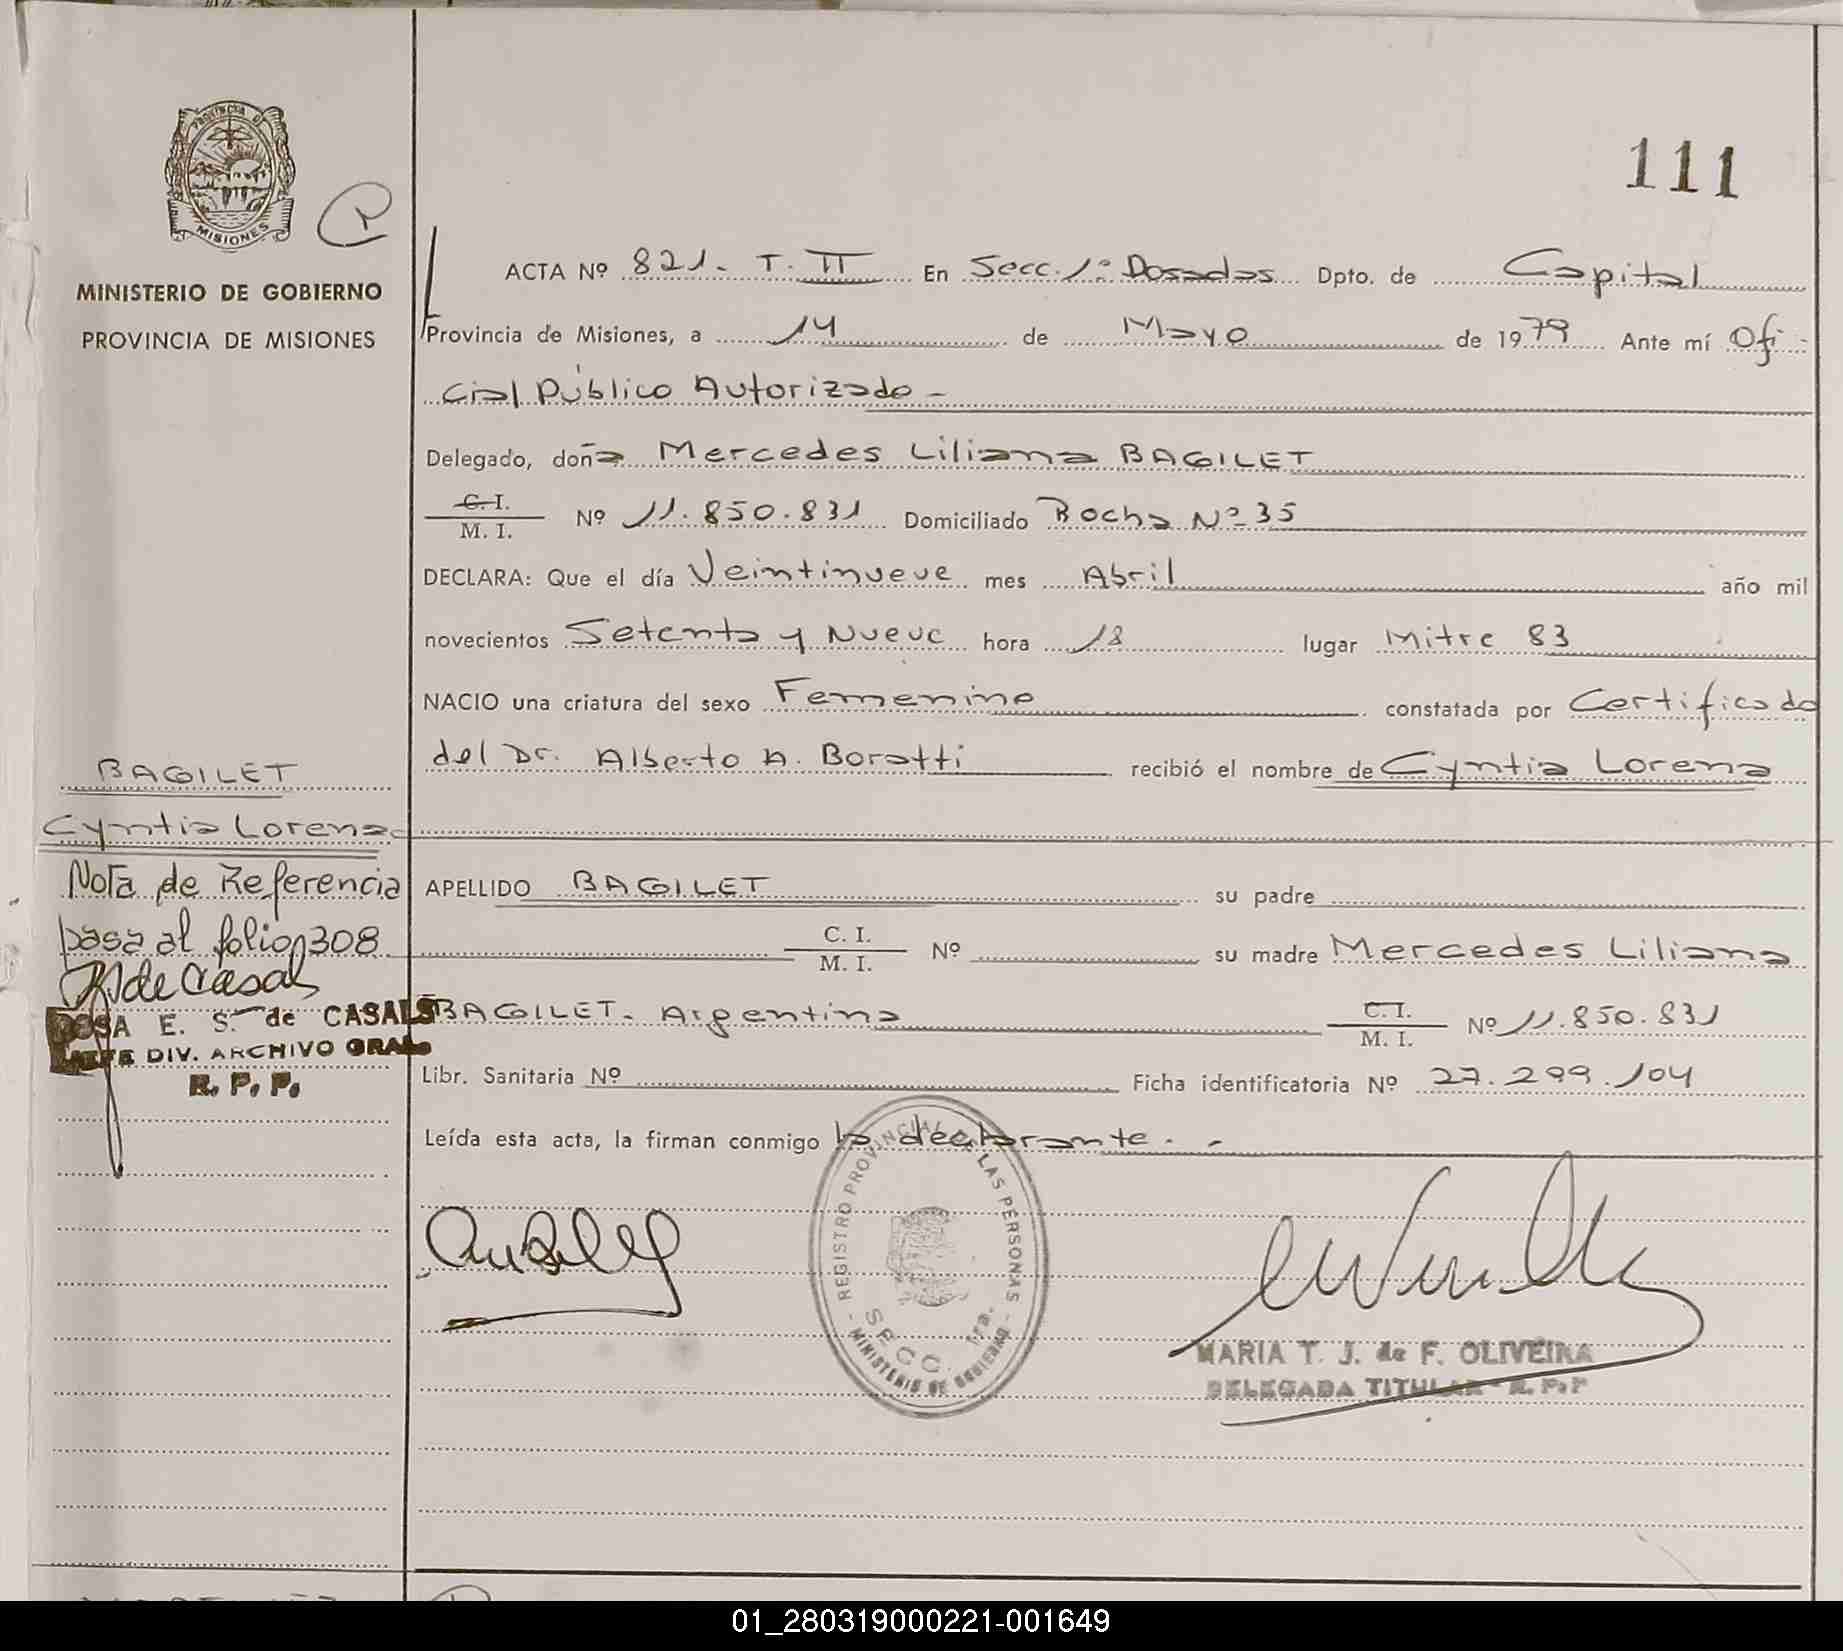 PROVINCIA D
MISIONES
MINISTERIO DE GOBIERNO
PROVINCIA DE MISIONES
111
ACTA Nº 821. T. II En Secc. 1ª Posadas Dpto. de Capital
Provincia de Misiones, a 14 de Mayo de 1979 Ante mí Ofi-
cial Público Autorizado -
Delegado, doña Mercedes Liliana BAGILET
C. I.
M. I. Nº 11.850.831 Domiciliado Bocha Nº 35
DECLARA: Que el día Veintinueve mes Abril año mil
novecientos Setenta y Nueve hora 18 lugar Mitre 83
NACIO una criatura del sexo Femenino constatada por Certificado
del Dr. Alberto A. Boratti recibió el nombre de Cyntia Lorena
APELLIDO BAGILET su padre
C. I.
M. I. Nº su madre Mercedes Liliana
BAGILET. Argentina C. I.
M. I. Nº 11.850.831
Libr. Sanitaria Nº Ficha identificatoria Nº 27.299.104
Leída esta acta, la firman conmigo la declarante. -
BAGILET
Cyntia Lorena
Nota de Referencia
pasa al folio 308
R de Casals
ROSA E. S. de CASALS
JEFE DIV. ARCHIVO GRAL
R. P. P.
REGISTRO PROVINCIAL DE LAS PERSONAS
SECC. 1ra.
MINISTERIO DE GOBIERNO
MARIA T. J. de F. OLIVEIRA
DELEGADA TITULAR - R. P. P
01_280319000221-001649